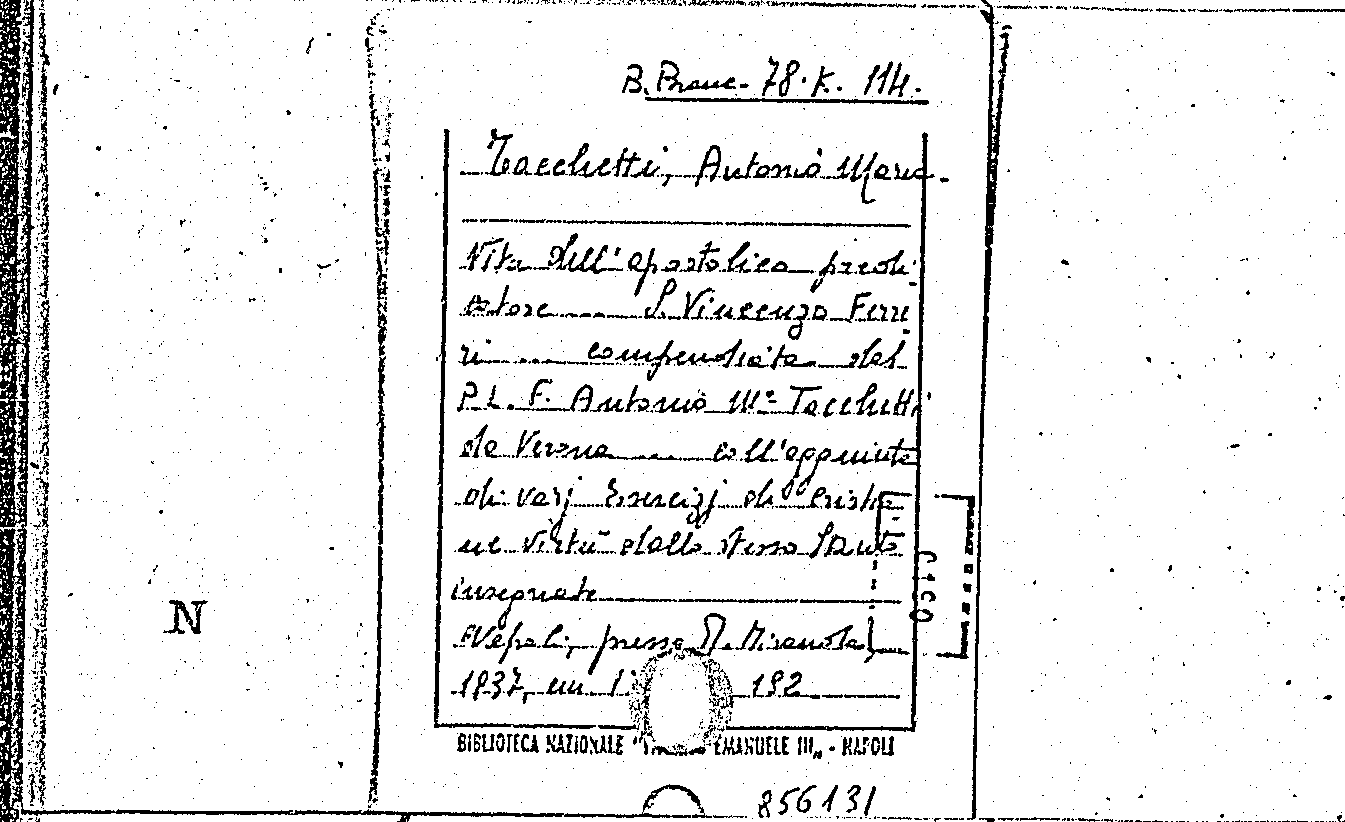 B. Branc. 78. K. 114.
Tacchetti, Antonio Maria.
Vita dell'apostolico predi-
catore .... S. Vincenzo Ferre-
ri .... compendiata dal
P. L. F. Antonio Mª Tacchetti
da Verona .... coll'aggiunta
di varj Esercizj di cristia-
ne virtù dallo stesso Santo
insegnate
Napoli, presso R. Miranda,
1837, in 192
BIBLIOTECA NAZIONALE " EMANUELE III„ - NAPOLI
N
856131